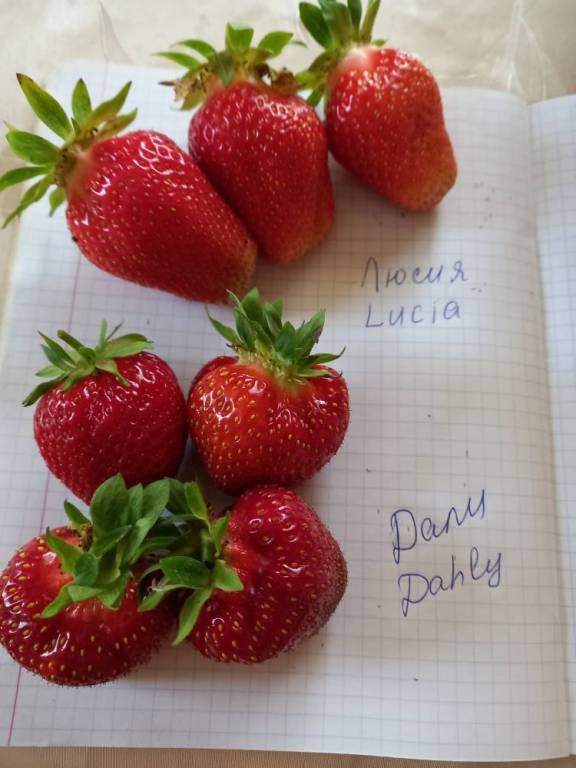 Люсия
Lucia
Дали
Dahly